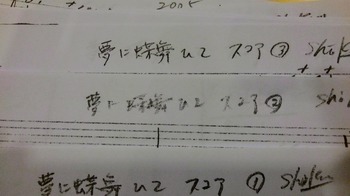 2005
夢に蝶舞ひて スコア ③ Shok
夢に蝶舞ひて スコア ② Sho
夢に蝶舞ひて スコア ① Shokan